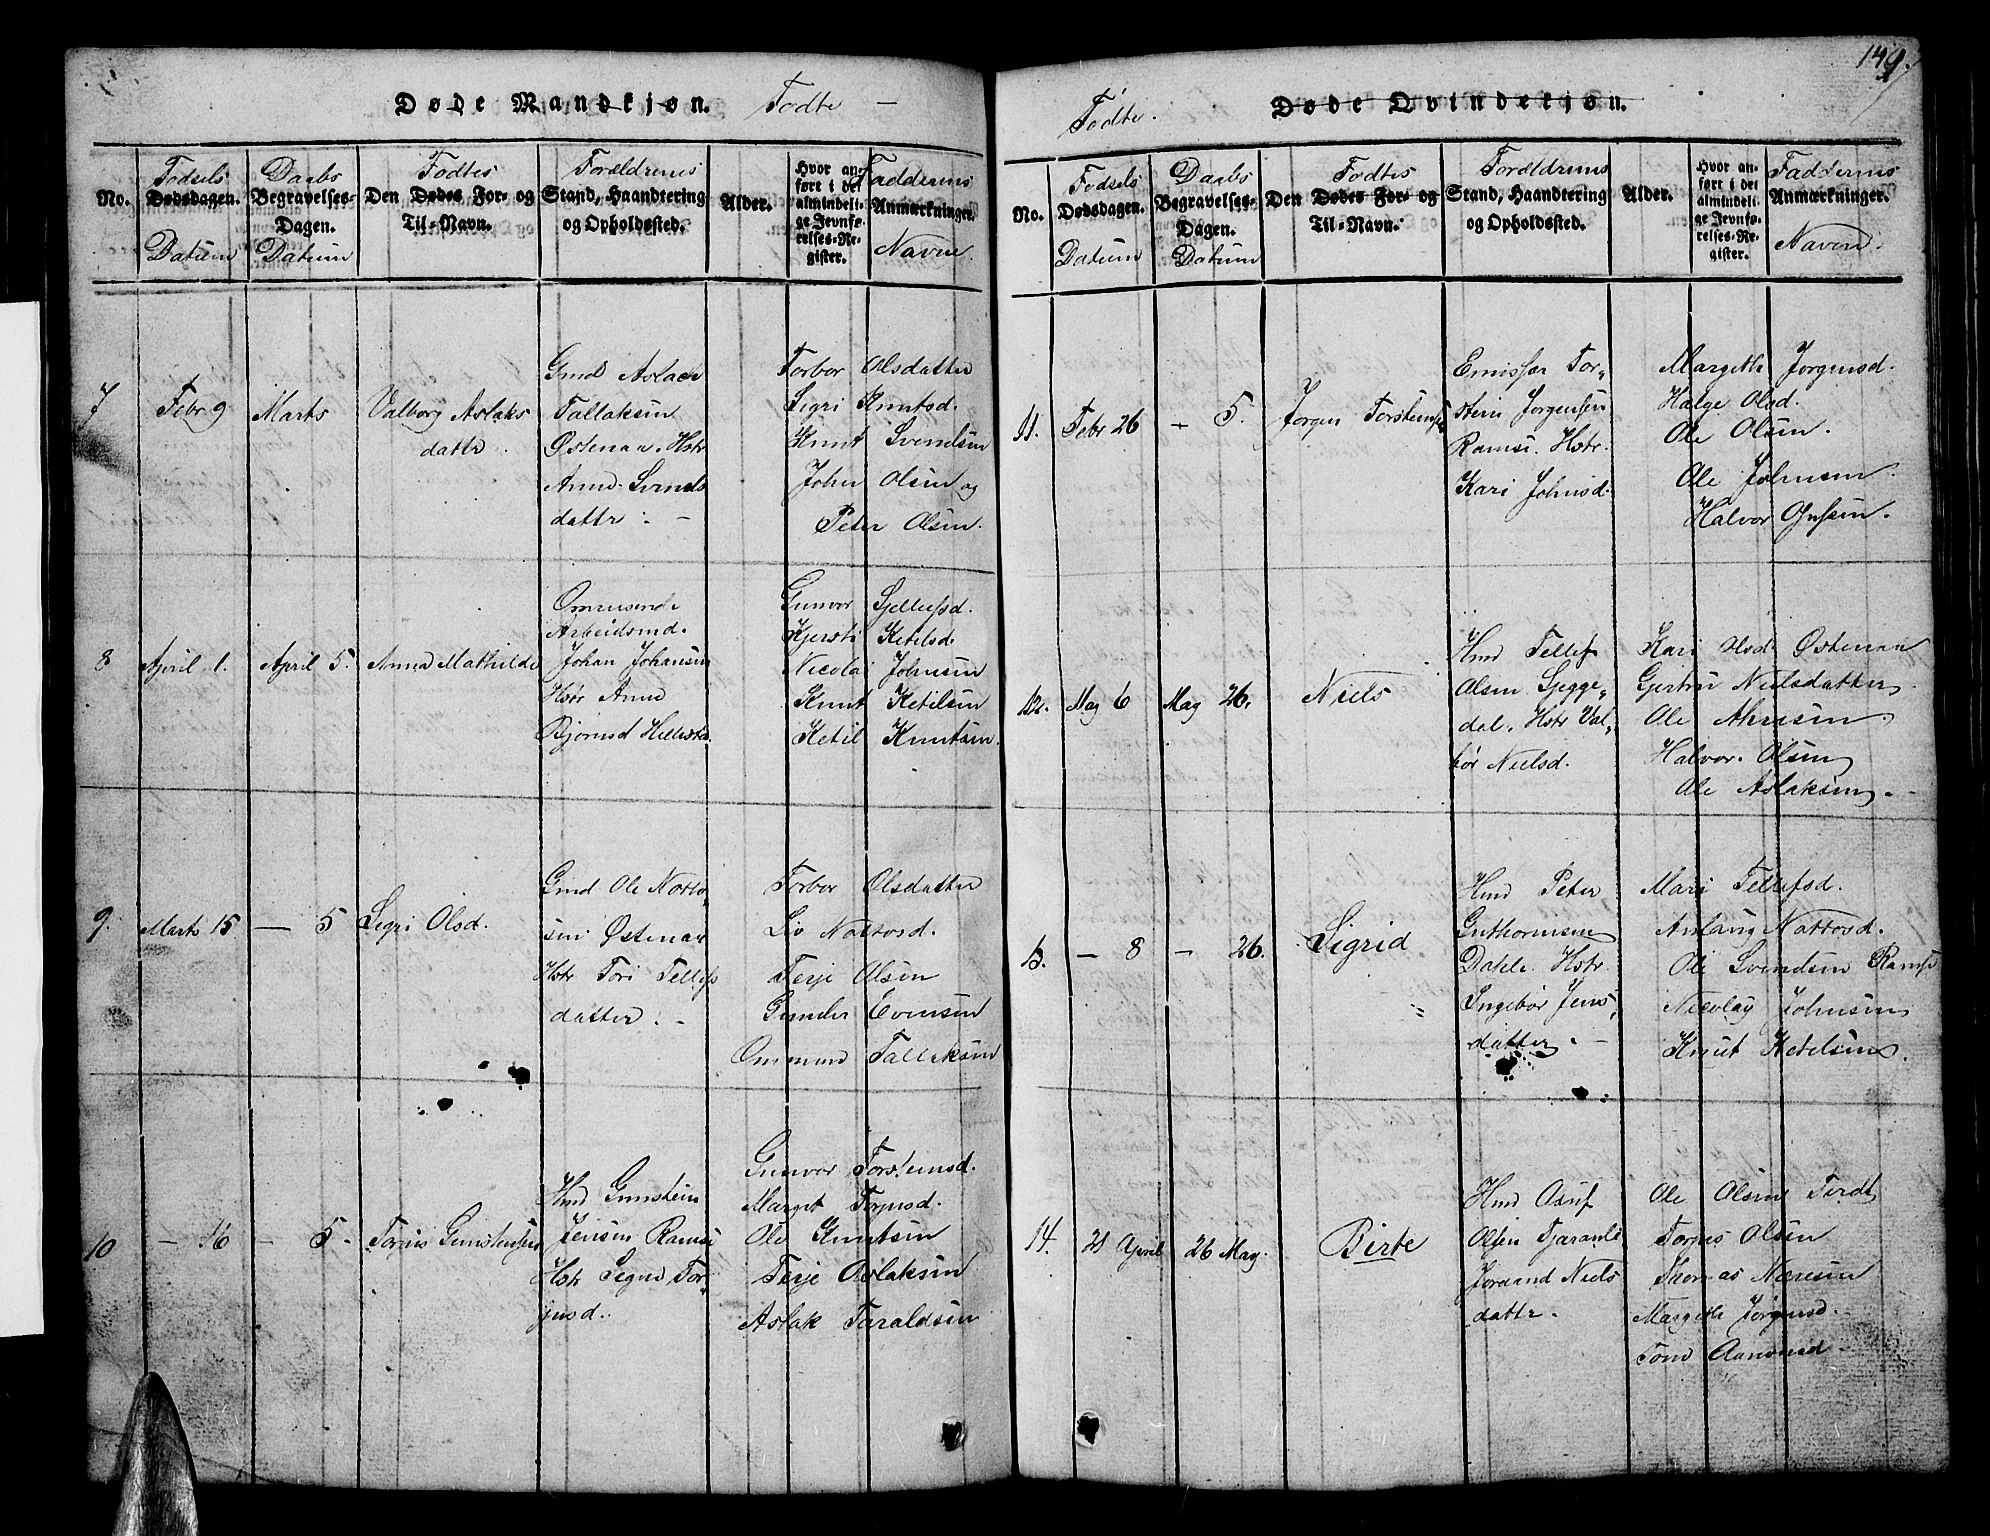 149.
Døde Mandkjøn. Fødte —
No.
Fødsels
Dødsdagen.
Datum
Daabs
Begravelses-
Dagen.
Datum
Fødtes
Den Dødes For- og
Til-Navn.
Forældrenes
Stand, Haandtering
og Opholdssted.
Alder.
Hvor an-
ført i det
almindeli-
ge Jevnfø-
relses-Re-
gister.
Faddernes
Anmærkninger.
Navne.
7
Febr 9
Marts
Valborg Aslaks
datter.
Gmd Aslach
Tallaksen
Østenaa. Hstr
Anne Svends
datter. —
Torbor Olsdatter
Sigri Knutsd.
Knut Svendsen
John Olsen og
Peter Olsen.
8
April 1.
April 5.
Anna Mathilde
Omreisende
Arbeidsmd.
Johan Johansen
Hstr Anne
Bjørnsd
Gunvor Sjellefsd.
Kjersti Ketelsd.
Nicolai Johnsen
Knut Ketilsen
Ketil Knutsen.
9.
Marts 15
— 5
Sigri Olsd.
Gmd Ole Notto-
sen Østenaa
Hstr Tori Tellefs
datter. —
Torbor Olsdatter
Liv Nottosd.
Terje Olsen
Gunder Evensen
Ommund Tallaksen
10
— 16
— 5.
Torius Gunstensen
Hmd Gunstein
Jensen Ramse
Hstr Signe Tor-
jusd.
Gunvor Torsteinsd.
Marget Torjusd.
Ole Knutsen
Terje Aslaksen
Aslak Taraldsen
Fødte.
Døde Qvindekjøn.
No.
Fødsels
Dødsdagen.
Datum
Daabs
Begravelses-
Dagen.
Datum
Fødtes
Den Dødes For- og
Til-Navn.
Forældrenes
Stand, Haandtering
og Opholdssted.
Alder.
Hvor an-
ført i det
almindeli-
ge Jevnfø-
relses-Re-
gister.
Faddernes
Anmærkninger.
Navne.
11.
Febr 26
— 5.
Jørgen Torstensen
Tor-
stein Jørgensen
Ramse. Hstr.
Kari Johnsd.
Margethe Jørgensd.
Helge Olsd.
Ole Olsen.
Ole Johnsen
Halvor
12.
May 6
May 26.
Niels
Hmd Tellef
Olsen Sjegge-
dal. Hstr Val-
bør Nielsd.
Kari Olsd Østenaa
Gjertru Nielsdatter
Ole
Halvor Olsen
Ole Aslaksen.
13.
— 8
— 26.
Sigrid
Hmd Peter
Guthormsen
Dahle. Hstr
Ingebor Jens-
datter. —
Mari Tellefsd.
Anlaug Nottosd.
Ole Svendsen Ramse
Nicolay Johnsen
Knut Ketelsen.
14.
21 April
26 May.
Birte
Hmd Osuf
Olsen
Joraand Niels
datter.
Ole Olsen
Torjus Olsen
Thomas
Margethe Jørgensd.
Tone Aanonsd